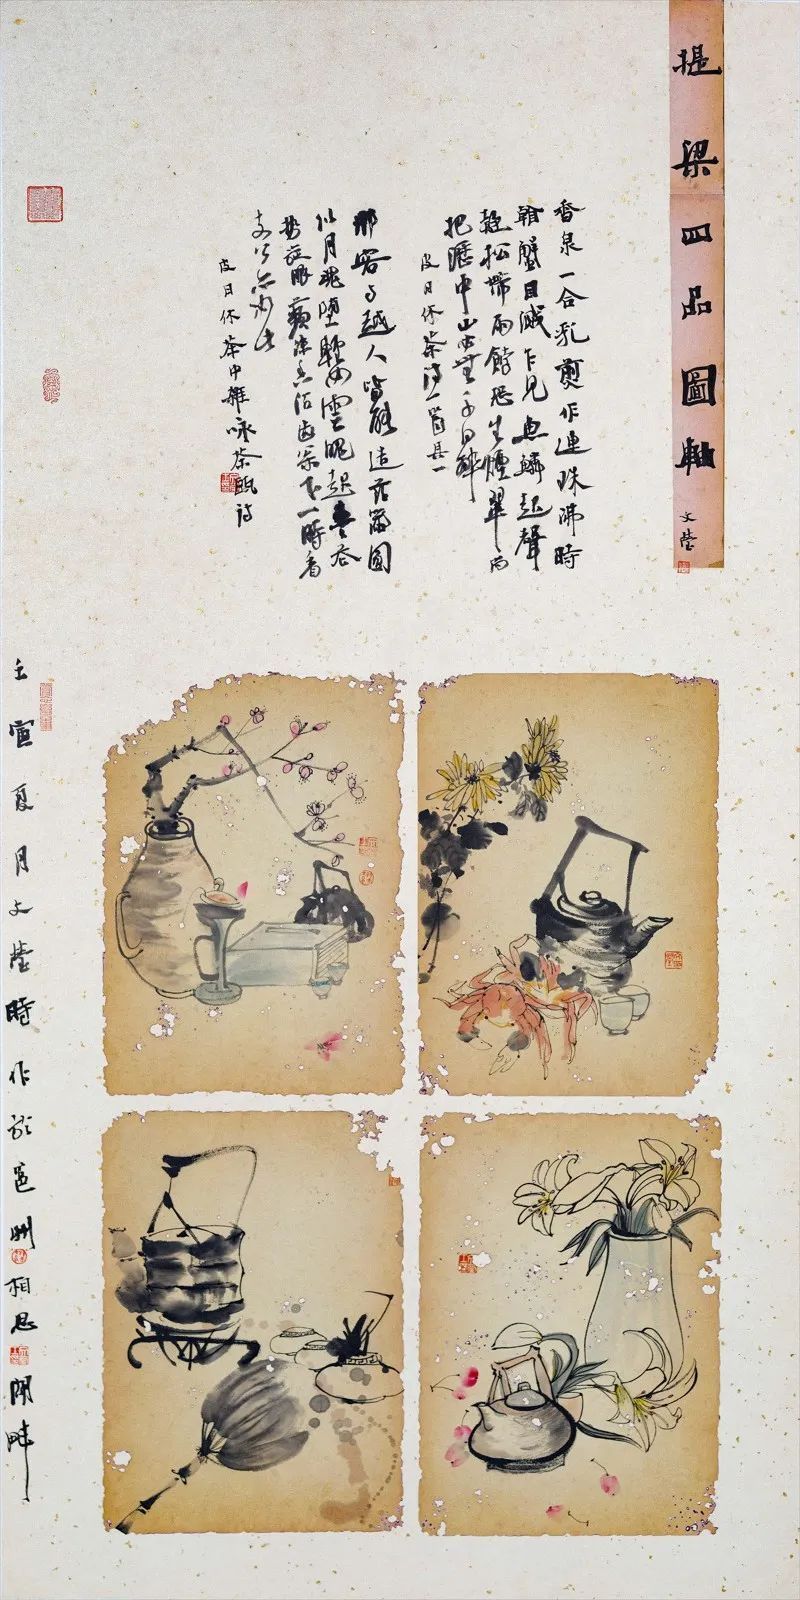 提梁四品圖軸
香泉一合乳煎作連珠沸時
看蟹目濺乍見魚鱗起聲
疑松帶雨餑恐生煙翠尚
把瀝中山必無千日醉
皮日休茶詩一首其一
邢客与越人皆能造茲器圓
似月魂墮輕如雲魄起棗花
勢旋眼蘋沫香沾齒松下一時看
支公亦如此
皮日休茶中雜咏茶甌詩
壬寅夏月文瑩時作於邕州相思湖畔